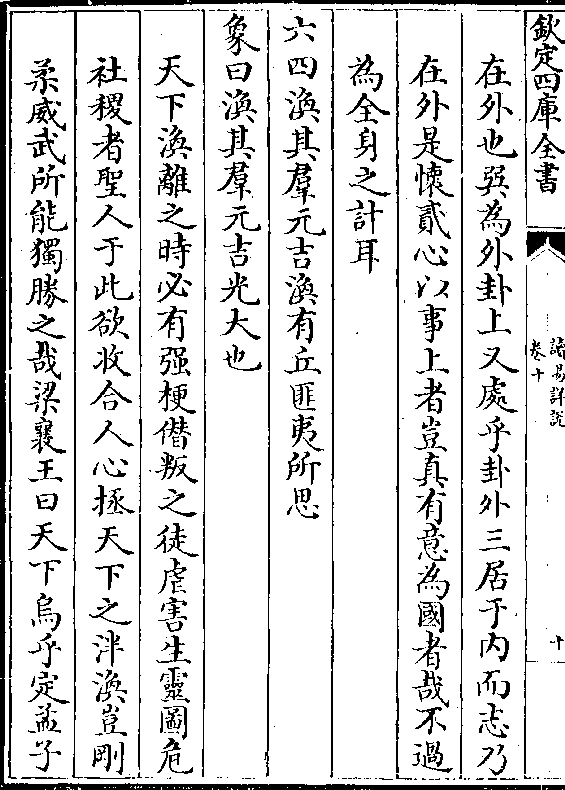 欽定四庫全書
讀易詳說
卷十
十
在外也巽為外卦上又處乎卦外三居于内而志乃
在外是懷貳心以事上者豈真有意為國者哉不過
為全身之計耳
六四渙其羣元吉渙有丘匪夷所思
象曰渙其羣元吉光大也
天下渙離之時必有强梗僭叛之徒虐害生靈圖危
社稷者聖人于此欲收合人心拯天下之泮渙豈剛
柔威武所能獨勝之哉梁襄王曰天下烏乎定孟子